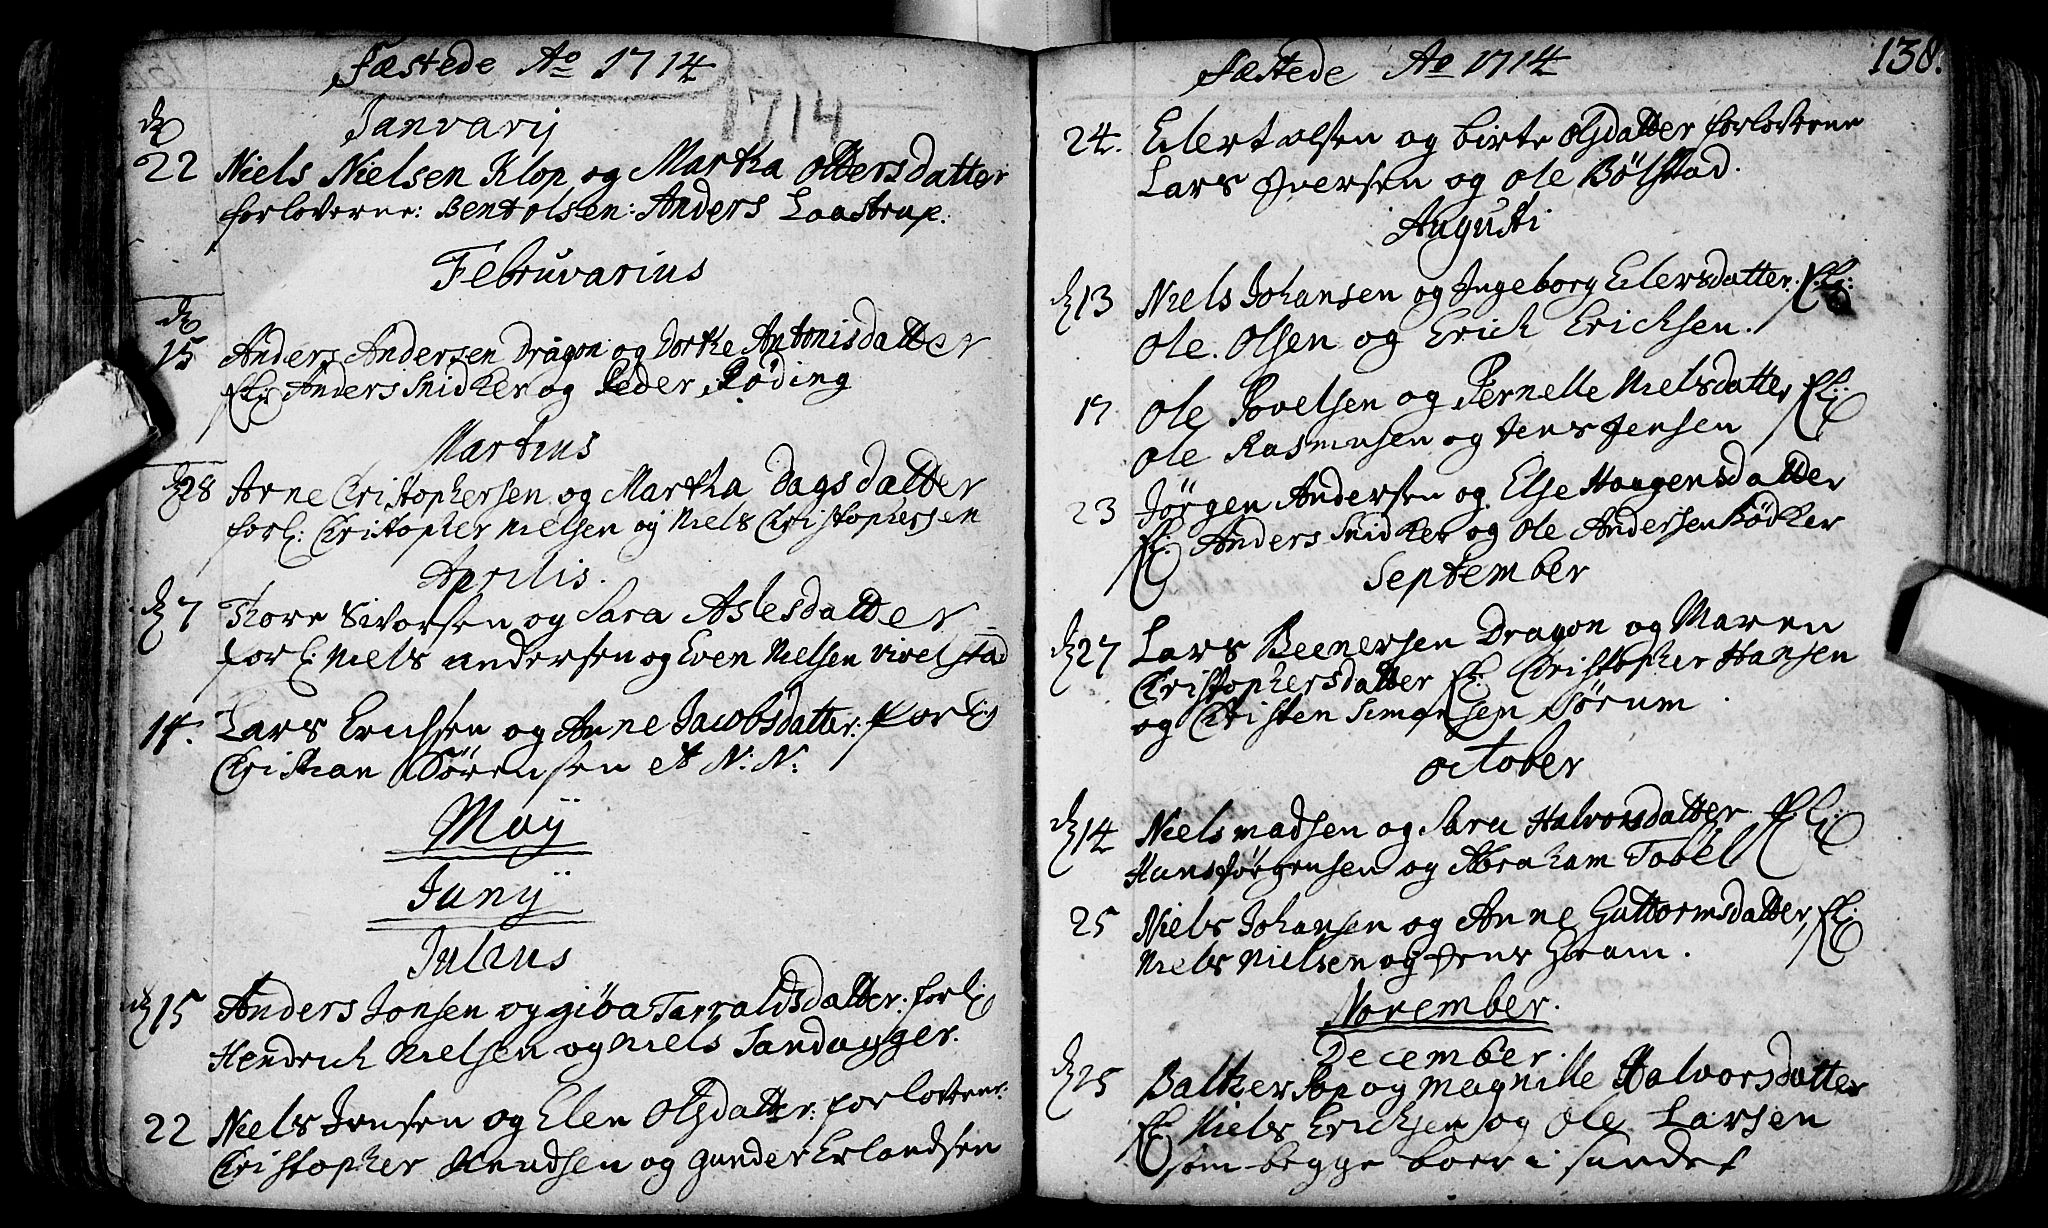 Fæstede Ao 1714
1714
Janvarij
d
22 Niels Nielsen Klop og Martha Ottersdatter
forloverne: Bent olsen: Anders Laastrup:
Februvarius
d
15 Anders Andersen Dragon og Dorthe Antonisdatter
Fl: Anders Snidker og Peder Røding
Martius
d 28 Arne Christophersen og Martha Dagsdatter
forl: Christopher Nielsen og Niels Christophersen
Aprilis.
d 7 Thore Sivorsen og Sara Aslesdatter
forl: Niels andersen og Even Nielsen Vivelstad
14. Lars Erichsen og Anne Jacobsdatter: forl:
Christian Sørensen et N: N:
Maij
Junij
Julius
d 15 Anders Jonsen og giøa Tarraldsdatter: forl:
Hendrich Nielsen og Niels Sandager.
22 Niels Jensen og Elen Olsdatter: forloverne:
Christopher Knudsen og gunder Erlandsen
Fæstede Ao 1714
138.
24. Eilert olsen og birte olsdatter forloverne
Lars Iversen og Ole Bølstad.
Augusti
d 13 Niels Johansen og Ingeborg Eilersdatter. Fl:
Ole. Olsen og Erich Ericksen.
17 Ole Povelsen og Pernelle Nielsdatter Fl:
Ole Rasmusen og Jens Jensen
23 Jørgen Andersen og Else Haagensdatter
Fl: Anders Snidker og Ole Andersen Bødker
September
d 27 Lars Beenersen Dragon og Maren
Christophersdatter Fl: Christopher Hansen
og Christen Simonsen Sørum.
October
d 14 Niels madsen og Sara Halvorsdatter Fl:
Hans Jørgensen og Abraham Tobel
25 Niels Johansen og Anne Guttormsdatter, Fl:
Niels Nielsen og Jens Gram.
November.
December.
d 25 Baltzer Sop og Magnille Halvorsdatter
Fl: Niels Ericksen og Ole Larsen
som begge boer i sundet